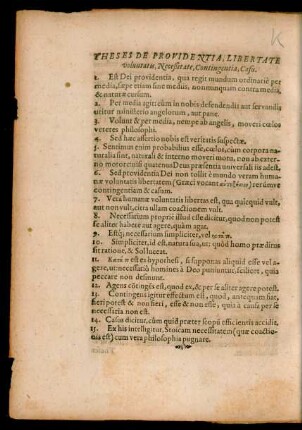 THESES DE PROVIDENTIA, LIBERTATE
voluntatis, Necessitate, Contingentia, Casu.
1. Est Dei providentia, qua regit mundum ordinariè per
media, sæpe etiam sine medijs, nonnunquam contra media,
& naturæ cursum.
2. Per media agit: etsi in nobis defendendis aut servandis
utitur ministerio angelorum, aut panè.
3. Volunt & per media, nempe ab angelis, moveri cœlos
veteres philosophi.
4. Sed hæc assertio nobis est veritatis suspectæ.
5. Sentimus enim probabilius esse, cœlos, cùm corpora na-
turalia sint, naturali & interno moveri motu, non ab exter-
no motore: nisi quatenus Deus præsentia universali iis adest.
6. Sed providentia Dei non tollit è mundo veram huma-
næ voluntatis libertatem (Græci vocant) rerumq́;
contingentiam & casum.
7. Vera humanæ voluntatis libertas est, qua quicquid vult,
aut non vult, citra ullam coactionem vult.
8. Necessarium propriè illud esse dicitur, quod non potest
se aliter habere aut agere, quàm agat.
9. Estq́; necessarium simpliciter, vel
10. Simpliciter, id est, natura sua, ut: quòd homo præ ditus
sit ratione, & Sol luceat.
11. est ex hypothesi, si supponas aliquid esse vel a-
gere, ut necessariò homines à Deo puniuntur, scilicet, quia
peccare non desinunt.
12. Agens cōtingēs est, quod ex, & per se aliter agere potest.
13. Contingens igitur effectum est, quod, antequam fiat,
fieri potest & non fieri, esse & non esse, quia à causa per se
necessaria non est.
14. Casus dicitur, cùm quid præter scopū efficientis accidit.
15. Ex his intelligitur, Stoicam necessitatem (quæ coactio-
nis est) cum vera philosophia pugnare.